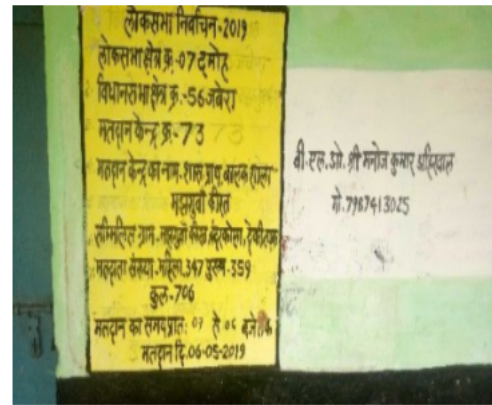 लोकसभा निर्वाचन-2019
लोकसभा क्षेत्र क्र.-07 दमोह
विधानसभा क्षेत्र क्र.-56 जबेरा
मतदान केन्द्र क्र.-73
मतदान केन्द्र का नाम-शास. प्राथ. बालक शाला
महगुवां
सम्मिलित ग्राम-
मतदाता संख्या-महिला.347 पुरुष-359
कुल-706
मतदान का समय प्रातः 07 से 06 बजे तक
मतदान दि.06-05-2019
बी.एल.ओ. श्री मनोज कुमार अहिरवाल
मो.7987413025